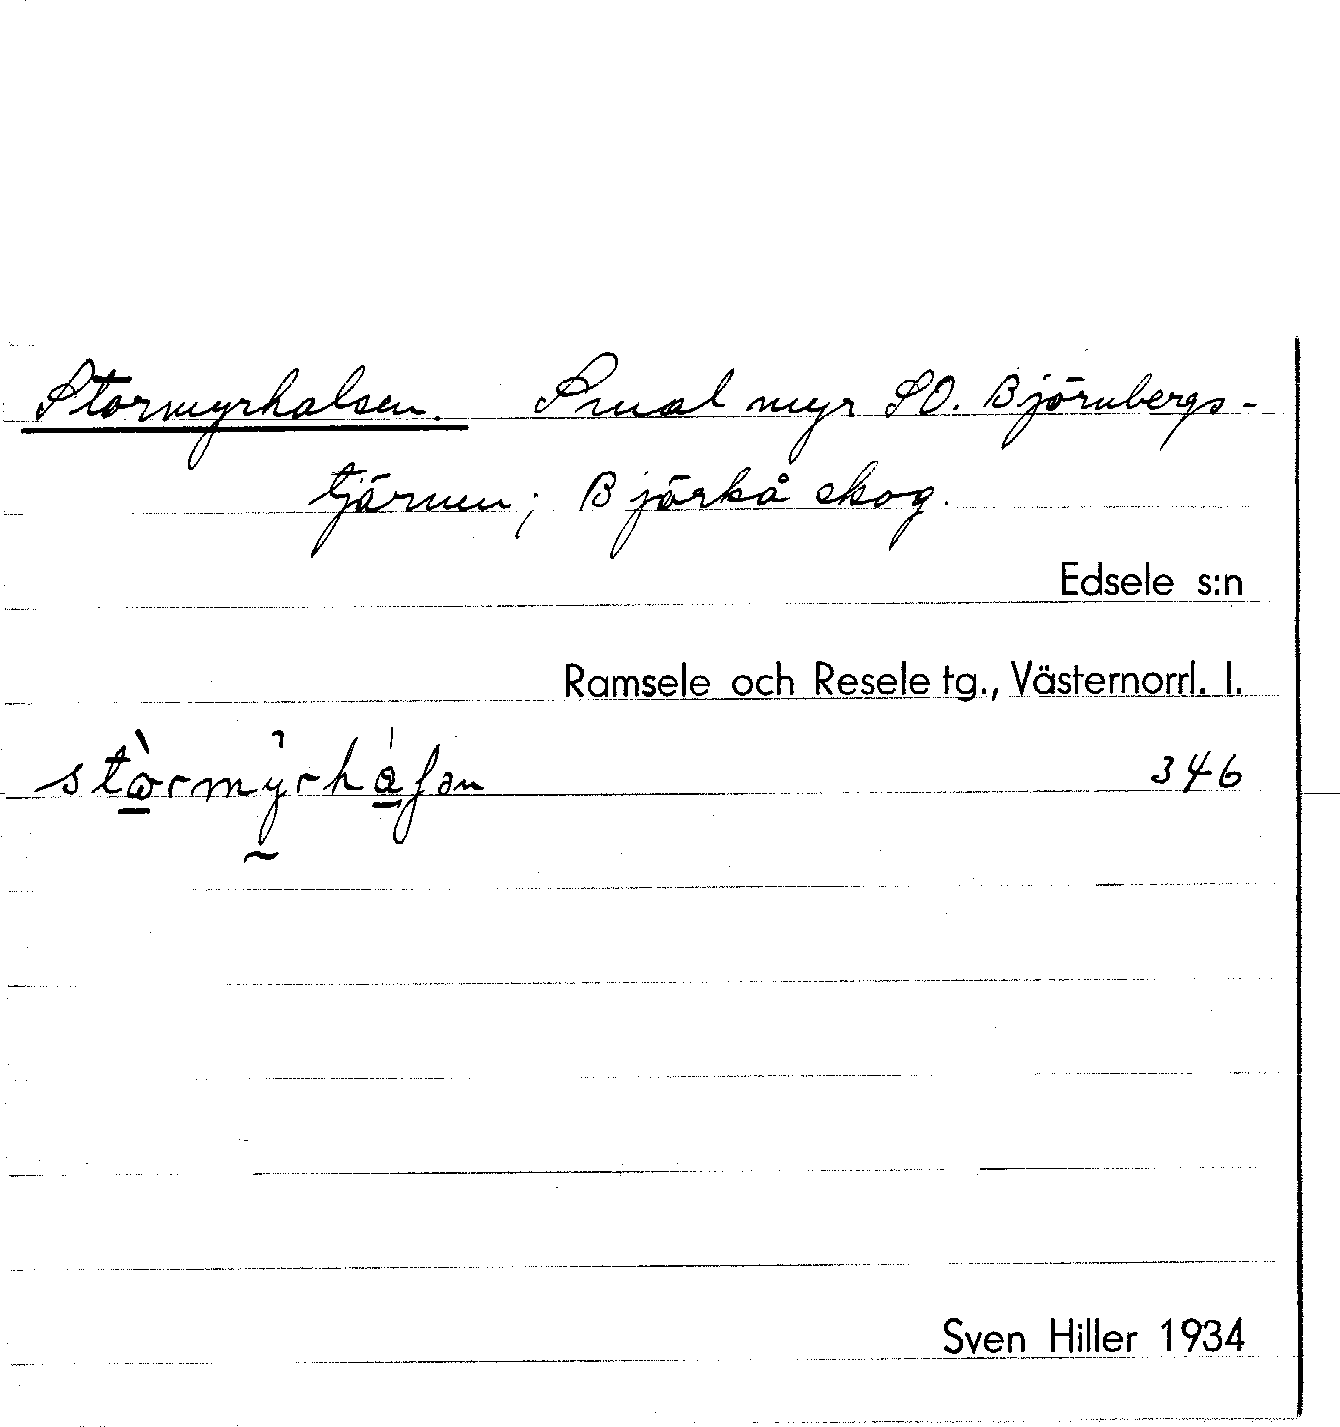 Stormyrhalsen. Smal myr SO. Björnbergs-
tjärnen; Björkå skog.
Edsele s:n
Ramsele och Resele tg., Västernorrl. l.
346
Sven Hiller 1934